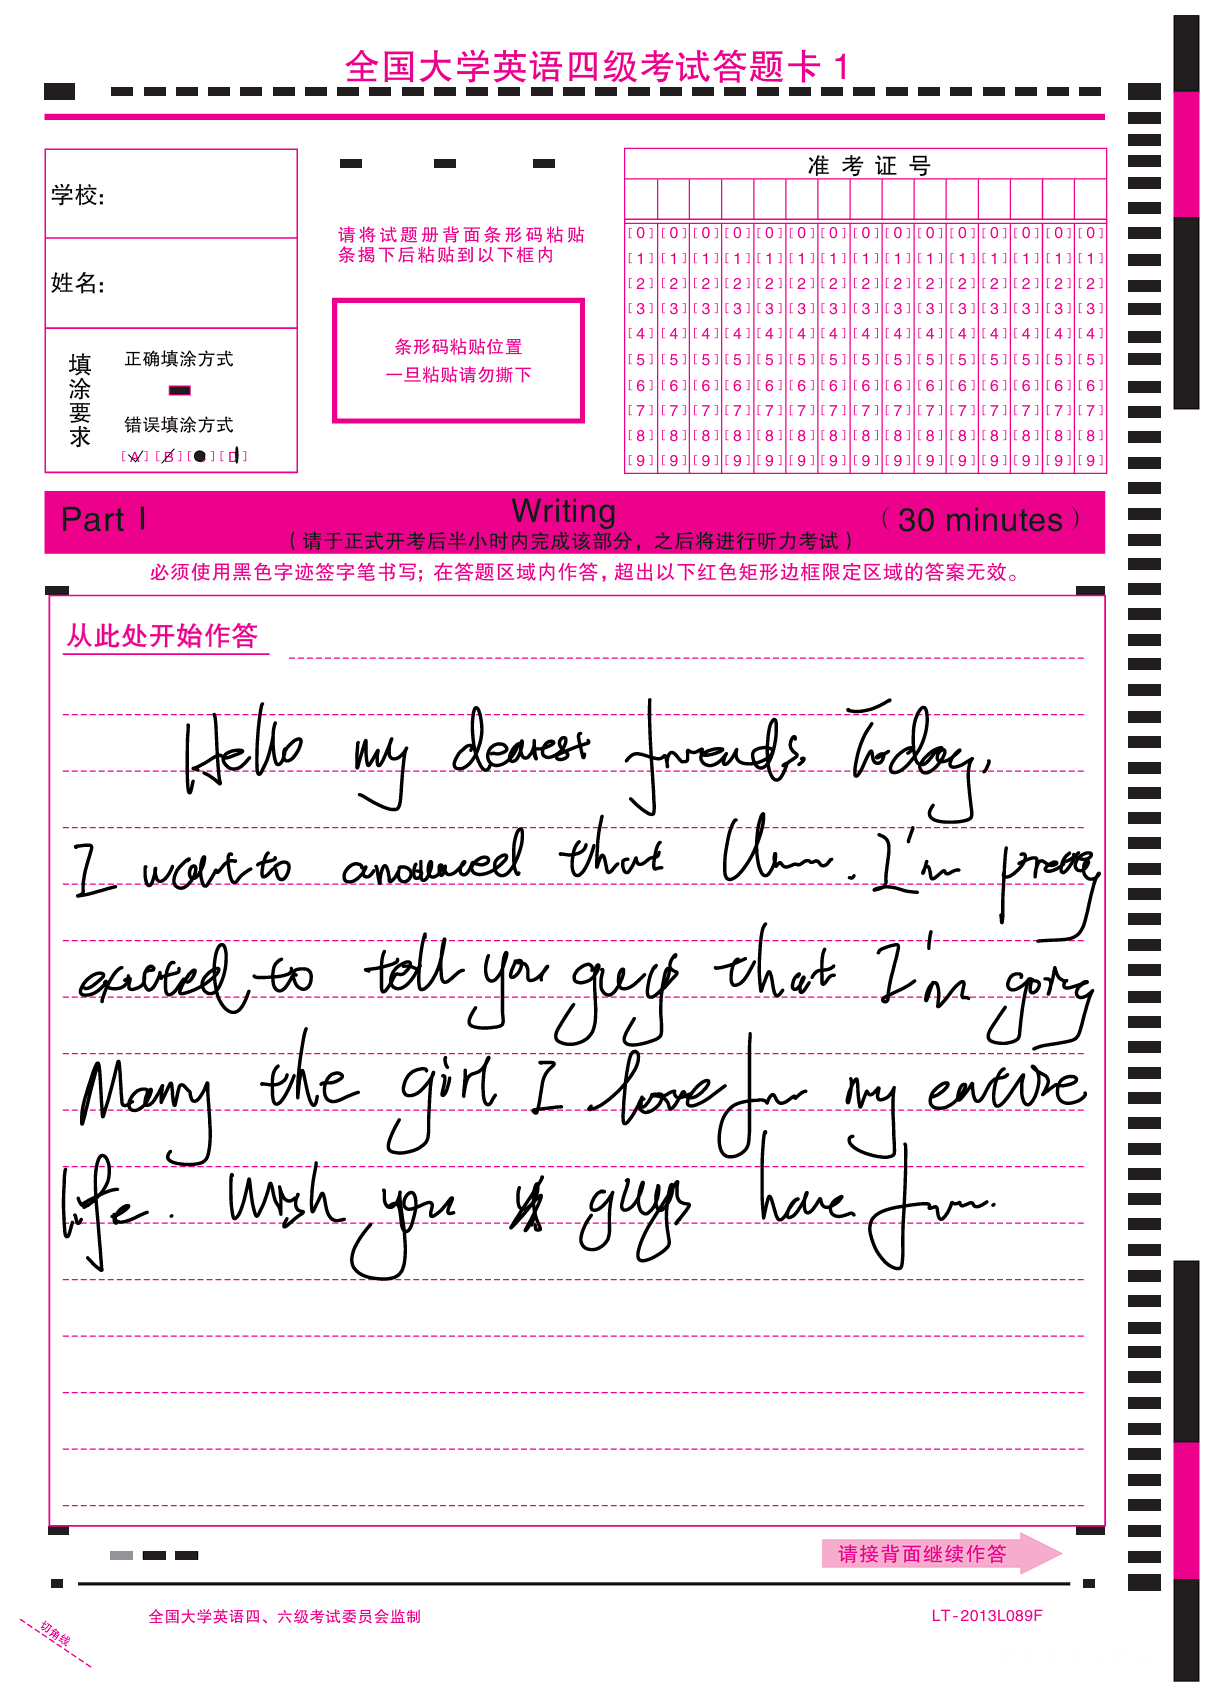 全国大学英语四级考试答题卡1
学校：
姓名：
填涂要求
正确填涂方式
错误填涂方式
[A] [B] [C] [D]
请将试题册背面条形码粘贴
条揭下后粘贴到以下框内
条形码粘贴位置
一旦粘贴请勿撕下
准考证号
[0] [0] [0] [0] [0] [0] [0] [0] [0] [0] [0] [0] [0] [0] [0]
[1] [1] [1] [1] [1] [1] [1] [1] [1] [1] [1] [1] [1] [1] [1]
[2] [2] [2] [2] [2] [2] [2] [2] [2] [2] [2] [2] [2] [2] [2]
[3] [3] [3] [3] [3] [3] [3] [3] [3] [3] [3] [3] [3] [3] [3]
[4] [4] [4] [4] [4] [4] [4] [4] [4] [4] [4] [4] [4] [4] [4]
[5] [5] [5] [5] [5] [5] [5] [5] [5] [5] [5] [5] [5] [5] [5]
[6] [6] [6] [6] [6] [6] [6] [6] [6] [6] [6] [6] [6] [6] [6]
[7] [7] [7] [7] [7] [7] [7] [7] [7] [7] [7] [7] [7] [7] [7]
[8] [8] [8] [8] [8] [8] [8] [8] [8] [8] [8] [8] [8] [8] [8]
[9] [9] [9] [9] [9] [9] [9] [9] [9] [9] [9] [9] [9] [9] [9]
Part I Writing （30 minutes）
（请于正式开考后半小时内完成该部分，之后将进行听力考试）
必须使用黑色字迹签字笔书写；在答题区域内作答，超出以下红色矩形边框限定区域的答案无效。
从此处开始作答
Hello my dearest friends. Today,
I want to announced that Umm. I'm pretty
excited to tell you guys that I'm going
Marry the girl I love for my entire
life. Wish you guys have fun.
请接背面继续作答
全国大学英语四、六级考试委员会监制
LT-2013L089F
切角线